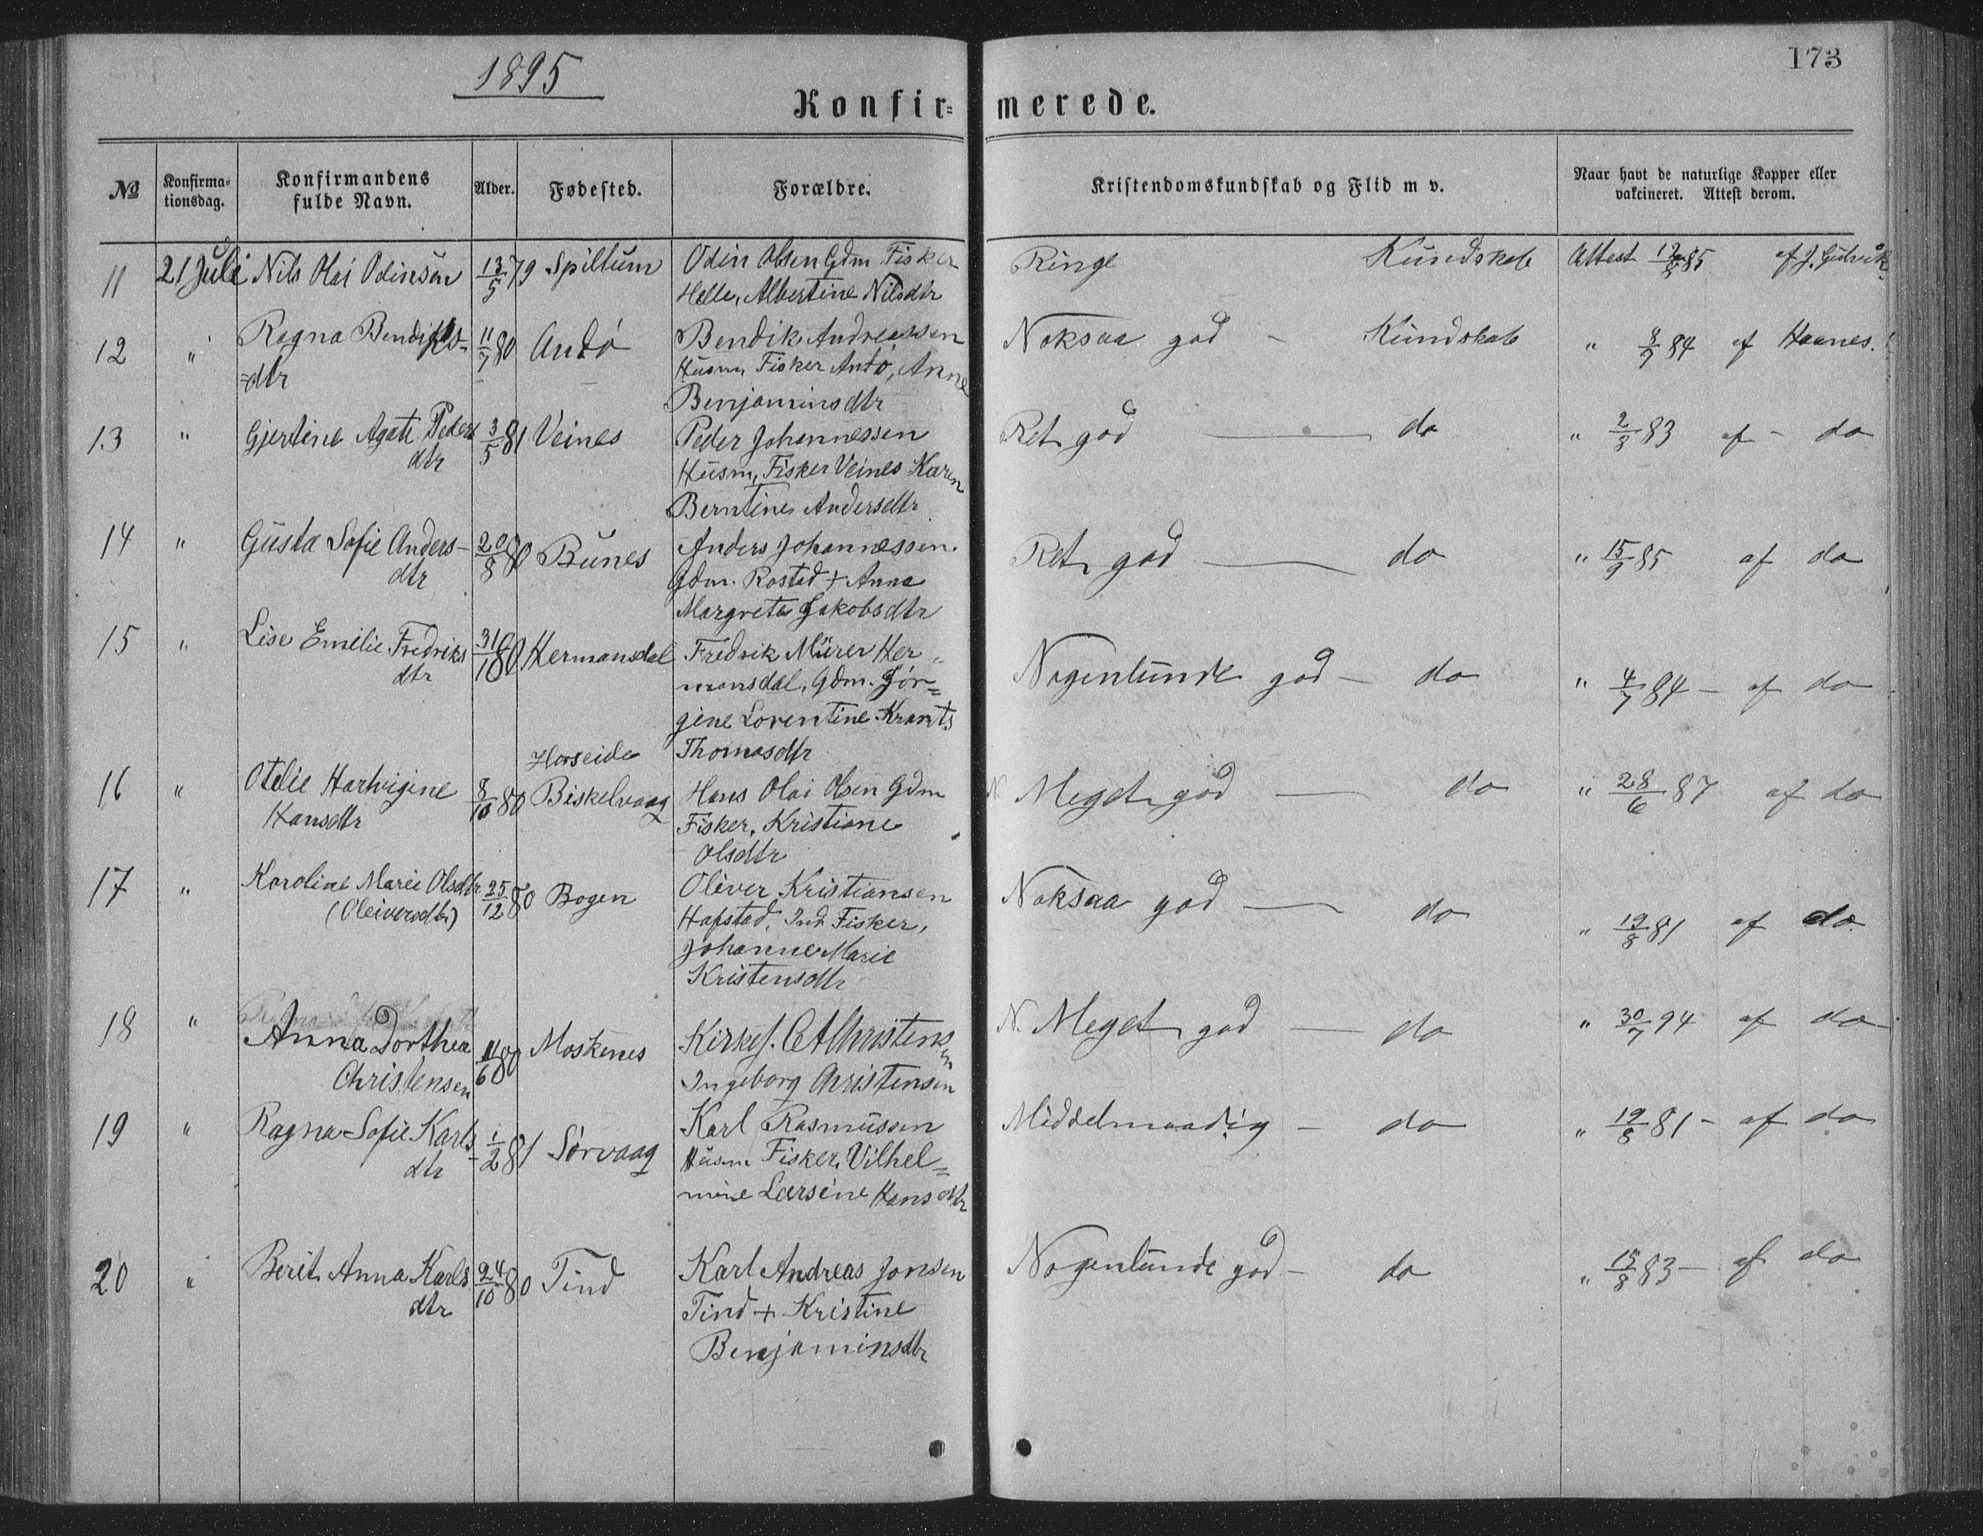 1895
173
Konfir- merede.
№ Konfirma- tionsdag. Konfirmandens fulde Navn. Alder. Fødested. Forældre. Kristendomskundskab og Flid m v. Naar havt de naturlige Kopper eller vakcineret. Attest derom.
11 21 Juli Nils Olai Odinsen 13/5 79 Spillum Odin Olsen Gdm Fisker Ringe Kundskab Attest 12/8 85 af J.
Helle, Albertine Nilsdtr
12 " Ragna Bendiks- 11/7 80 Andø Bendik Andreassen Noksaa god - Kundskab " 8/7 84 af Haanes.
=dtr Husm Fisker Andø, Anne
Benjaminsdtr
13 " Gjertine Agate Peders 3/5 81 Veines Peder Johannessen Ret god — do " 2/8 83 af - do
dtr Husm, Fisker Veines Karen
Berntine Andersdtr
14 " Gusta Sofie Anders- 20/8 80 Bunes Anders Johannessen. Ret god — do " 15/9 85 af do
dtr Gdm. Rostad + Anna
Margrete Jakobsdtr
15 " Lise Emilie Fredriks 31/1 80 Hermansdal Fredrik Mürer Her= Nogenlunde god - do " 4/7 84 - af do
dtr mansdal, Gdm. Jør=
gine Lorentine Krants
Thomasdtr
16 " Otelie Hartvigine 8/10 80 Horseide Biskelvaag Hans Olai Olsen Gdm N. Meget god — do " 28/6 87 af do
Hansdtr Fisker, Kristiane
Olsdtr
17 " Karoline Marie Olsdtr 25/12 80 Bogen Oliver Kristiansen Noksaa god — do " 19/8 81 af do
(Oleiversdtr) Hafstad, Ind Fisker,
Johanne Marie
Kristensdtr
18 " Anna Dorthea 11/6 80 Moskenes Kirkes. C A Christensen N. Meget god — do " 30/7 94 af do
Christensen Ingeborg Christensen
19 " Ragna Sofie Karls 1/2 81 Sørvaag Karl Rasmussen Middelmaadig - do " 19/8 81 - af do
dtr Husm Fisker, Vilhel=
mine Larsine Hansdtr
20 " Berit Anna Karls 24/10 80 Tind Karl Andreas Jonsen Nogenlunde god - do " 15/8 83 - af do
dtr Tind + Kristine
Benjaminsdtr